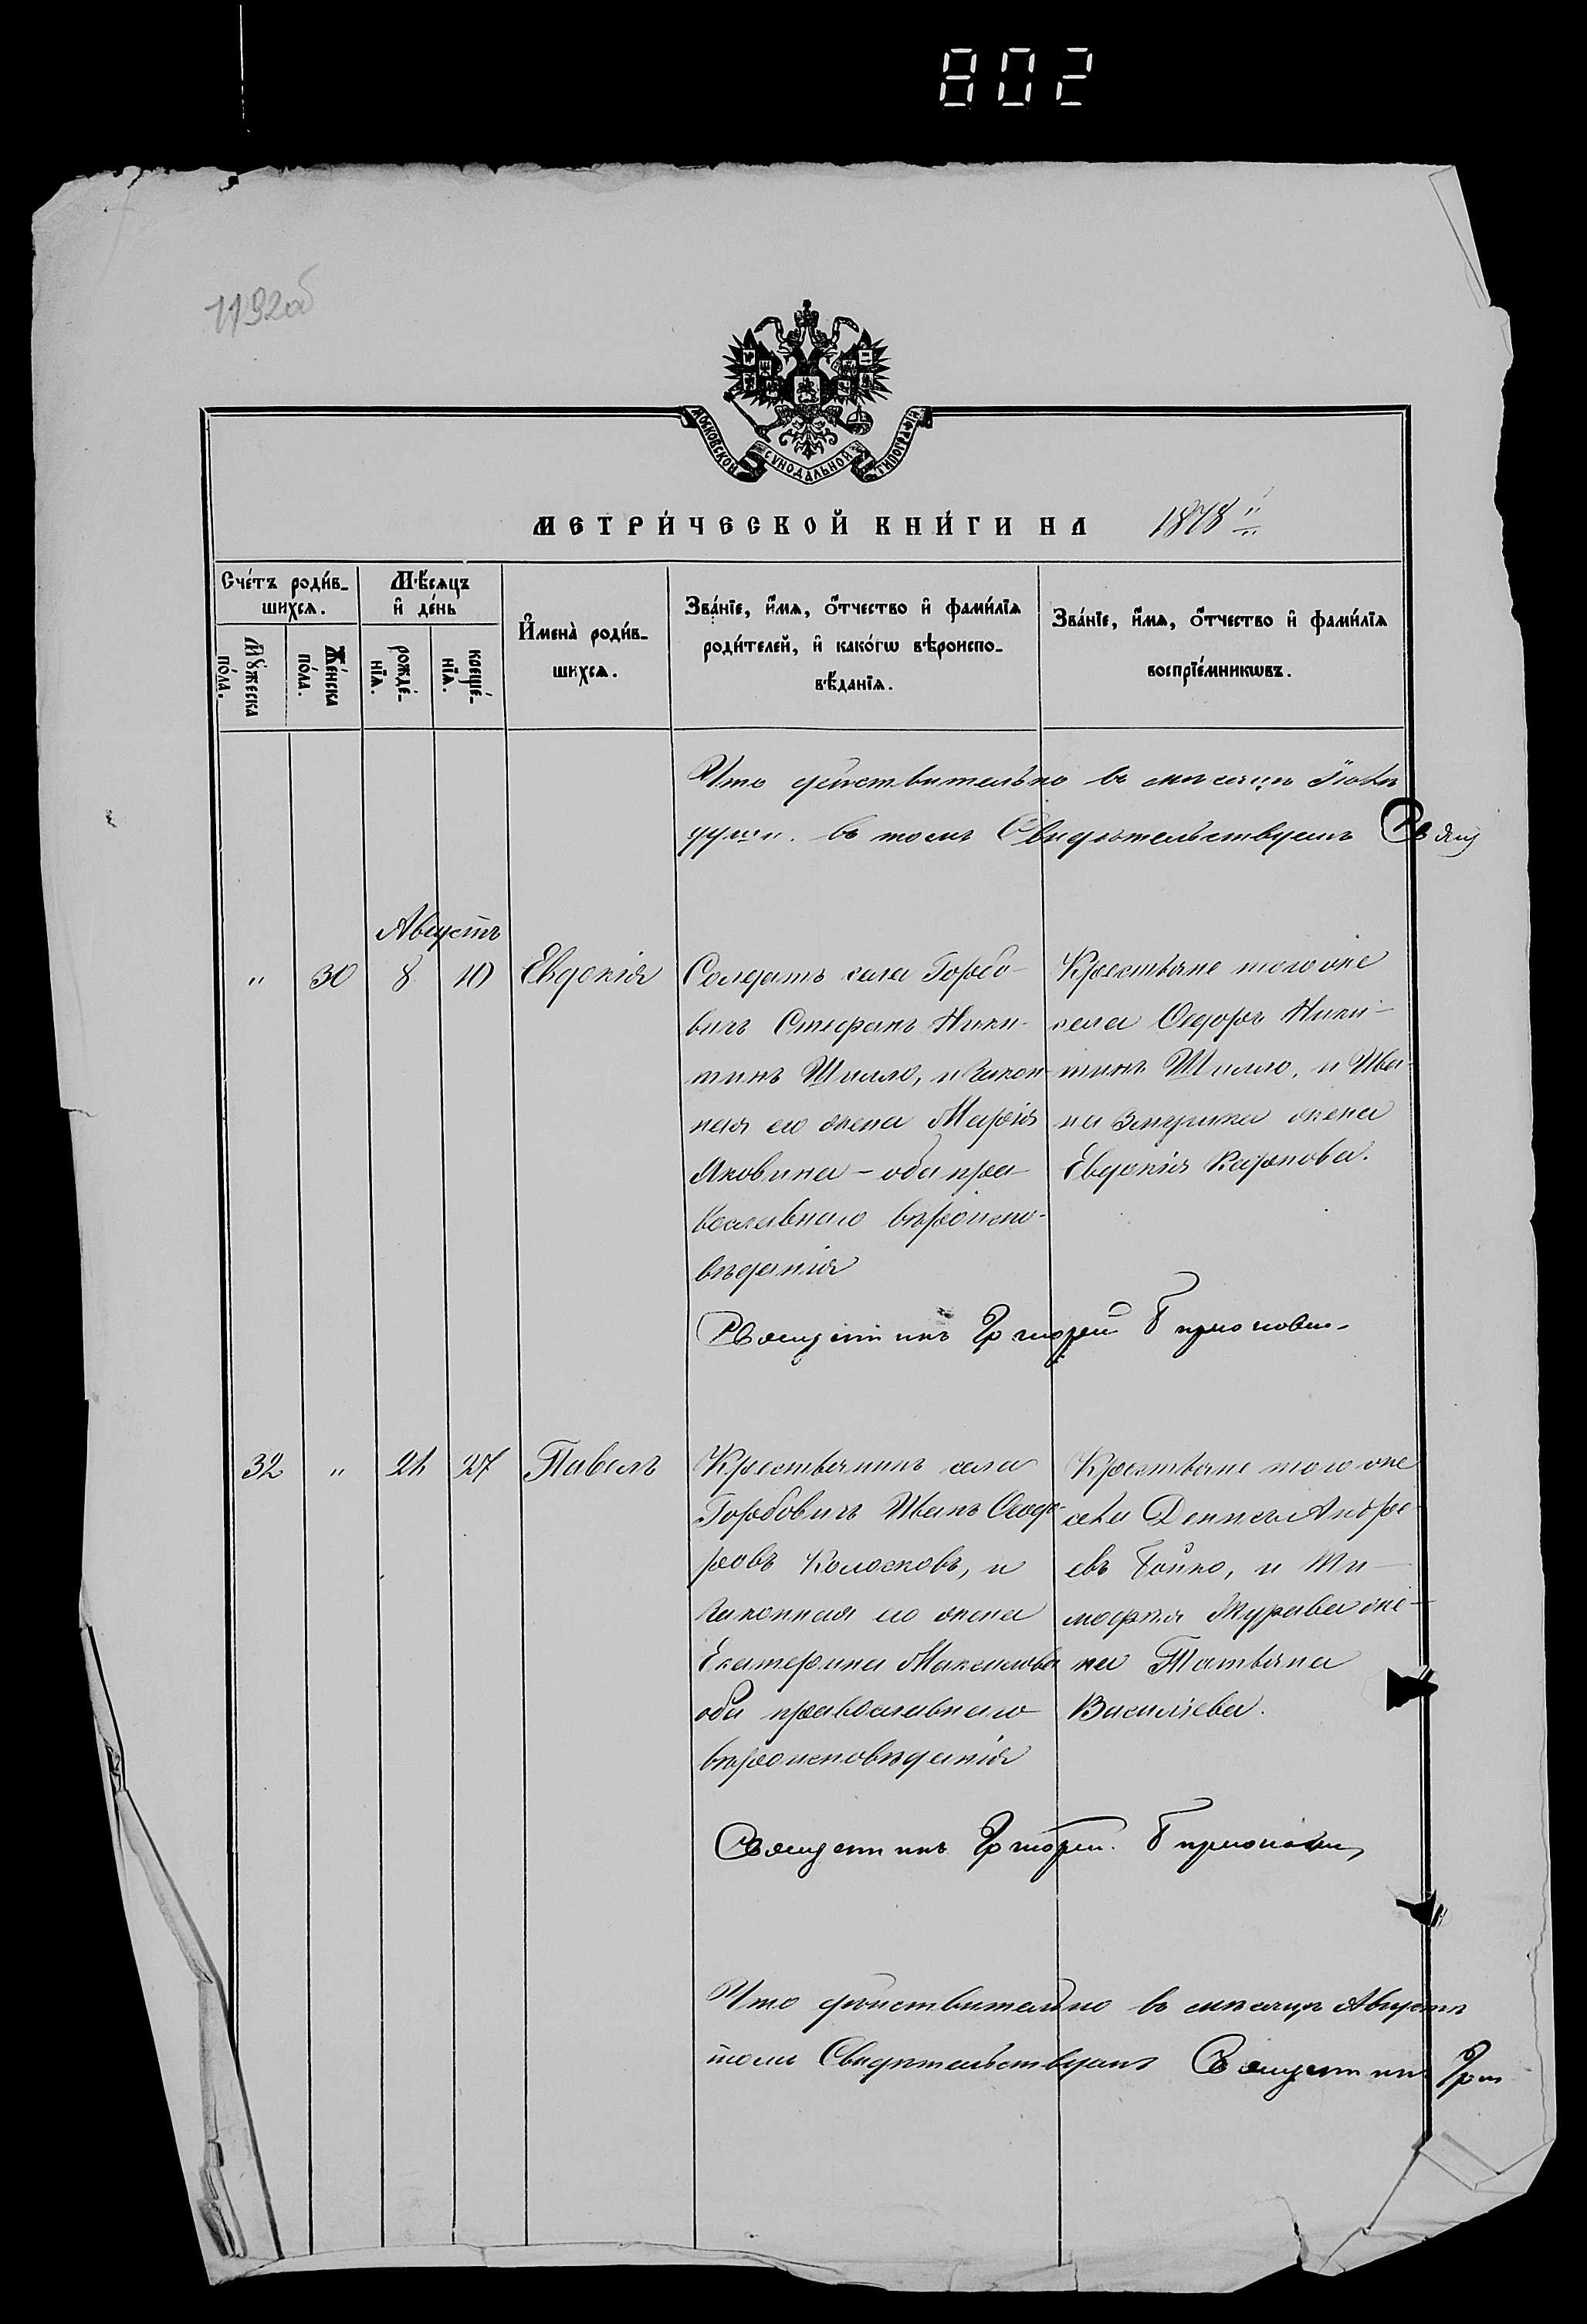 802
1192об
МОСКОВСКОЙ СѴНОДАЛЬНОЙ ТИПОГРАФІИ
МЕТРИ́ЧЕСКОЙ КНИ́ГИ НА 1878
Сче́тъ роди́в-
шихсѧ.
Мѣ́сѧцъ
и҆ де́нь
И҆мена̀ роди́в-
шихсѧ.
Зва́нїе, и҆́мѧ, ѻ҆́тчество и҆ фами́лїѧ
роди́телей, и҆ како́гѡ вѣроиспо-
вѣ́данїѧ.
Зва́нїе, и҆́мѧ, ѻ҆́тчество и҆ фами́лїѧ
воспрїе́мникѡвъ.
Мꙋ́жеска
по́ла.
Же́нска
по́ла.
рожде́-
нїѧ.
креще́-
нїѧ.
Что действительно въ месяцѣ Іюлѣ
въ томъ Свидѣтельствуемъ Свящ
Августъ
" 30 8 10 Евдокія
Солдатъ села Горбо-
вичъ Стефанъ Ники-
тинъ Шило, и закон-
ная его жена Марія
Яковлева - оба пра-
вославнаго вѣроиспо-
вѣданія
Крестьяне того же
села Ѳедоръ Ники-
тинъ Шило, и Ива-
на жена
Евдокія Карпова.
Священникъ Григорій
32 " 24 27 Павелъ
Крестьянинъ села
Горбовичъ Иванъ Ѳеодо-
ровъ Колосковъ, и
законная его жена
Екатерина Максимова
оба православнаго
вѣроисповѣданія
Крестьяне того же
села Денисъ Андре-
евъ Бойко, и Ти-
мофея Журавля же-
на Татьяна
Василіева.
Священникъ Григорій
Что действительно въ мѣсяцѣ Августѣ
томъ Свидѣтельствуемъ Священникъ Гри